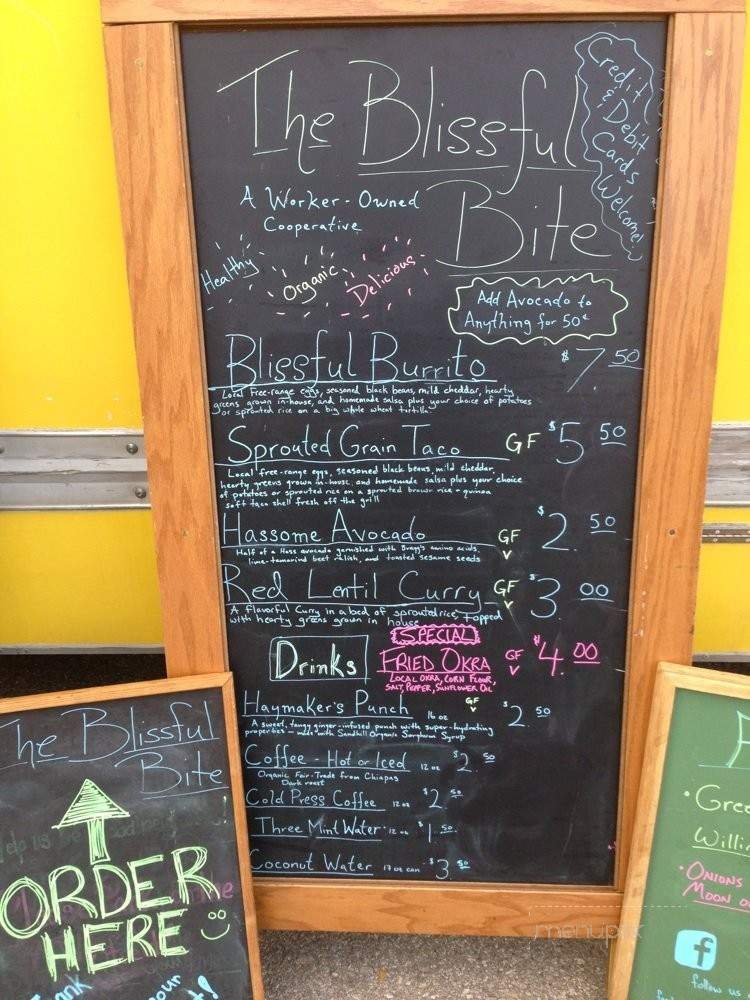 The Blissful
Bite
Credit
& Debit
Cards
Welcome!
A Worker-Owned
Cooperative
Healthy
Organic
Delicious
Add Avocado to
Anything for 50¢
Blissful Burrito $7.50
Local free-range eggs, seasoned black beans, mild cheddar, hearty
greens grown in-house, and homemade salsa plus your choice of potatoes
or sprouted rice on a big whole wheat tortilla
Sprouted Grain Taco GF $5.50
Local free-range eggs, seasoned black beans, mild cheddar,
hearty greens grown in-house, and homemade salsa plus your choice
of potatoes or sprouted rice on a sprouted brown rice + quinoa
soft taco shell fresh off the grill
Hassome Avocado GF V $2.50
Half of a Hass avocado garnished with Bragg's amino acids,
lime-tamarind beet relish, and toasted sesame seeds
Red Lentil Curry GF V $3.00
A flavorful Curry in a bed of sprouted rice, topped
with hearty greens grown in house
SPECIAL
FRIED OKRA GF V $4.00
LOCAL OKRA, CORN FLOUR,
SALT, PEPPER, SUNFLOWER OIL
Drinks
Haymaker's Punch 16 oz GF V $2.50
A sweet, tangy ginger-infused punch with super-hydrating
properties - made with Sandhill Organic Sorghum Syrup
Coffee - Hot or Iced 12 oz $2.50
Organic Fair-Trade from Chiapas
Dark roast
Cold Press Coffee 12 oz $2.50
Three Mint Water 12 oz $1.50
Coconut Water 17 oz can $3.50
The Blissful
Bite
ORDER
HERE
Gree
Willi
ONIONS
MOON
f
follow us
menupix